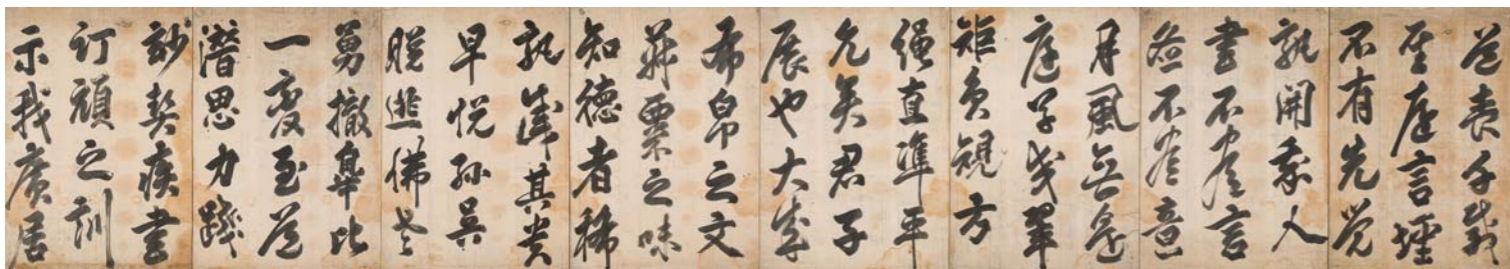 道喪千載
聖遠言堙
不有先覺
孰開我人
書不盡言
圖不盡意
月風無邊
庭草交翠
矩員規方
繩直準平
允矣君子
展也大成
布帛之文
菽粟之味
知德者稀
孰識其貴
早悅孫吳
晚逃佛老
勇撤皐比
一變至道
潛思力踐
妙契疾書
訂頑之訓
示我廣居